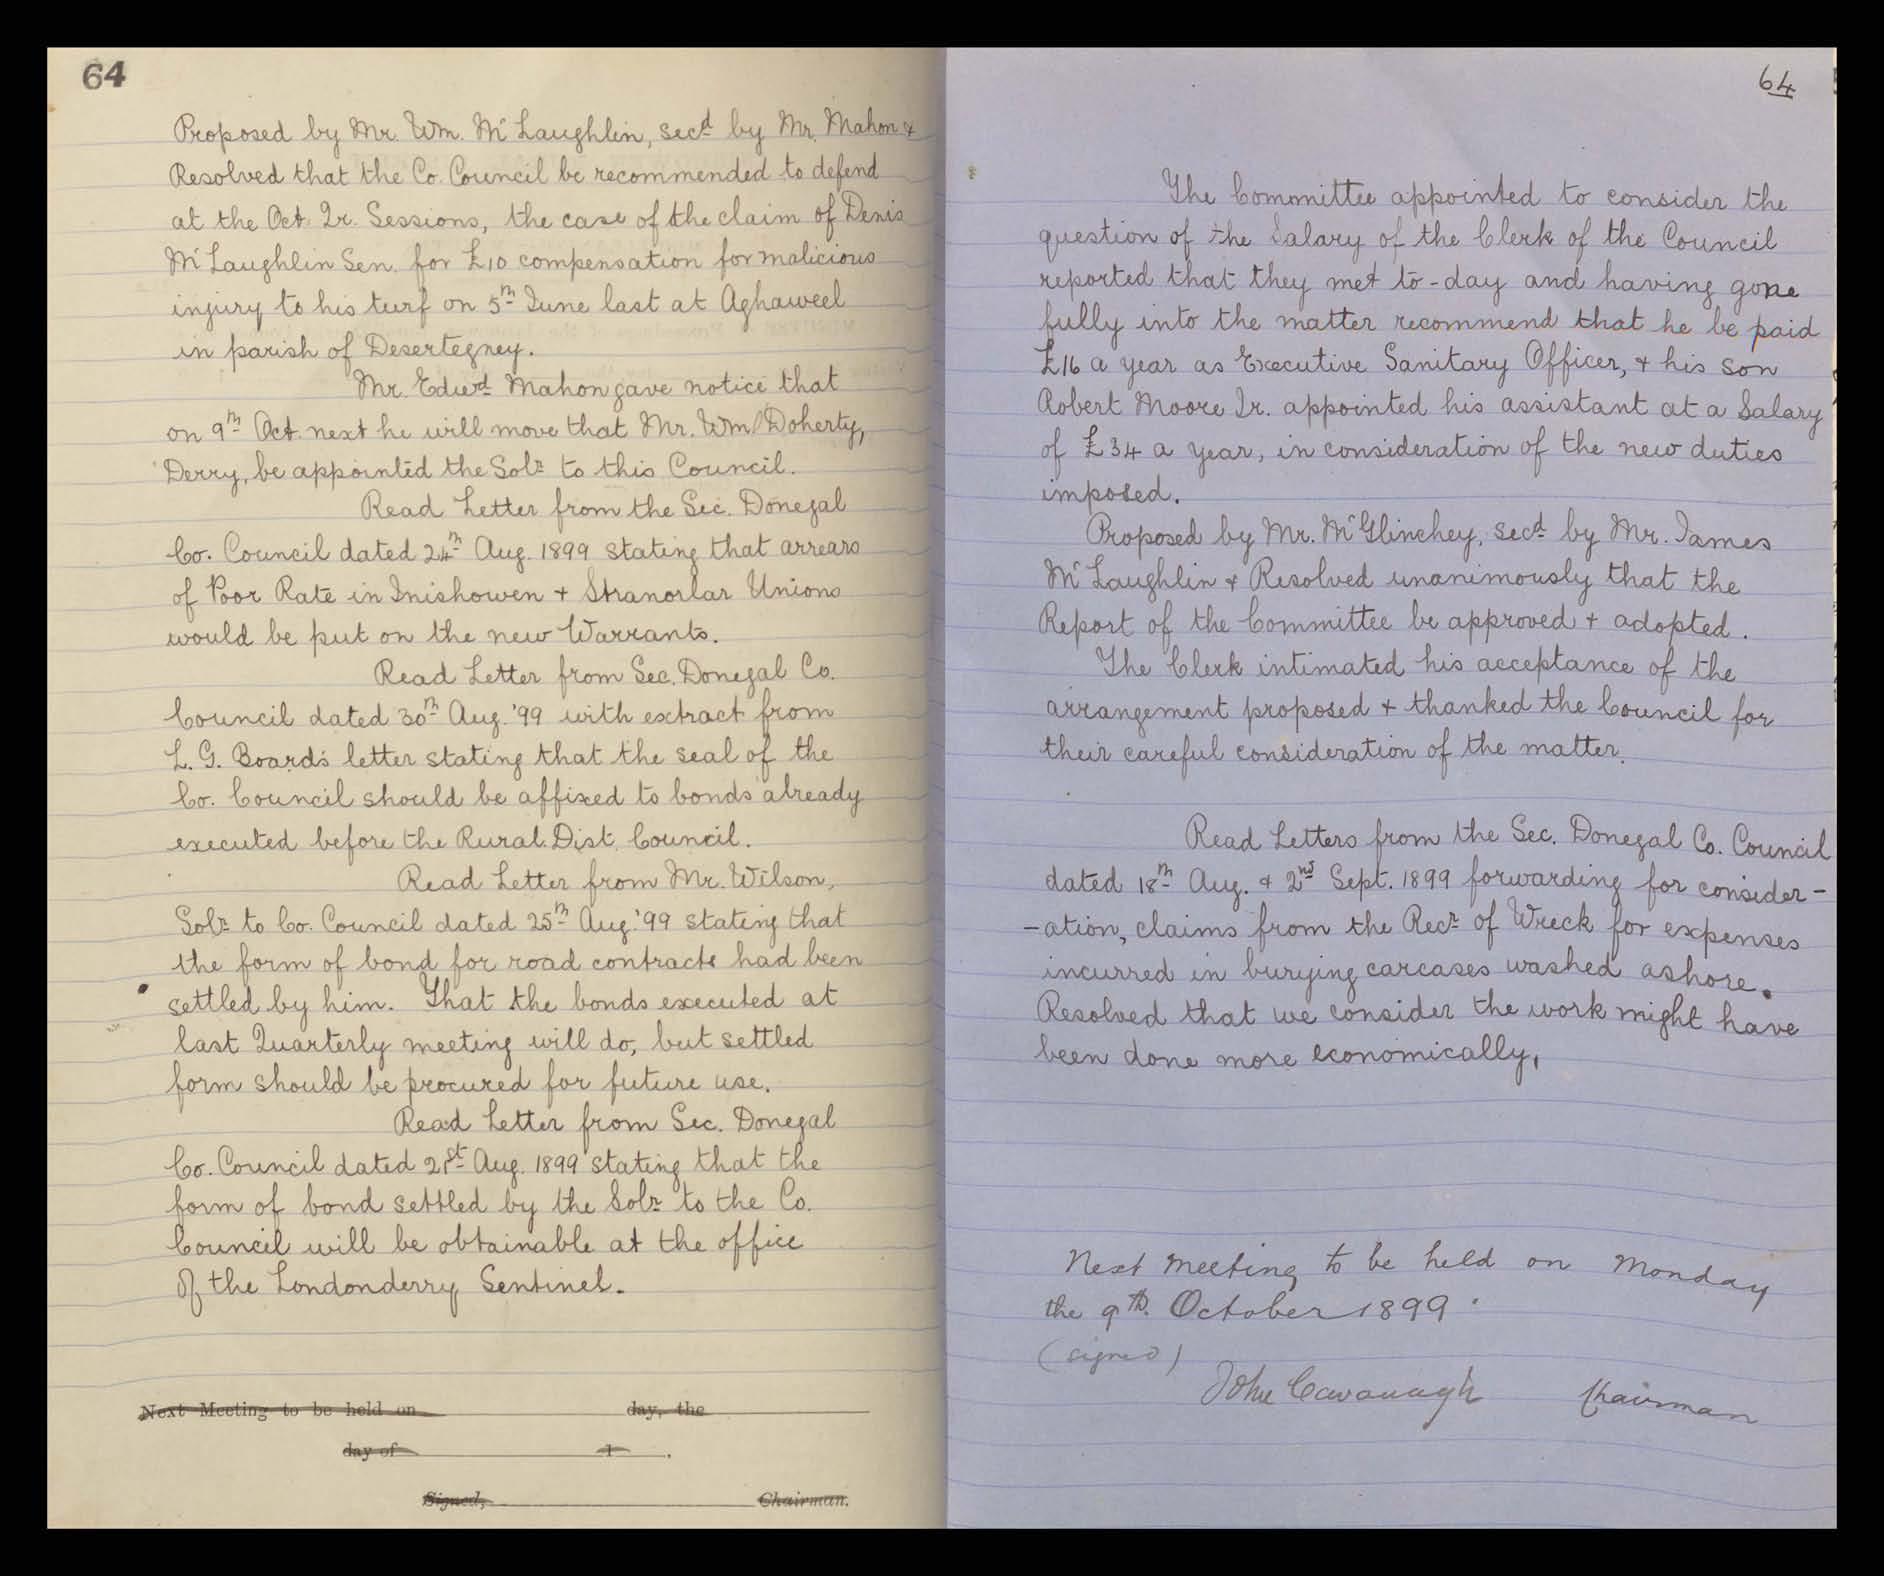 64
Proposed by Mr. Wm. McLaughlin, secd by Mr. Mahon &
Resolved that the Co. Council be recommended to defend
at the Oct. Qr. Sessions, the case of the claim of Denis
McLaughlin Sen. for £10 compensation for malicious
injury to his turf on 5th June last at Aghaweel
in parish of Desertegney.
Mr. Edwd Mahon gave notice that
on 9th Oct. next he will move that Mr. Wm Doherty,
Derry, be appointed the Solr to this Council.
Read Letter from the Sec. Donegal
Co. Council dated 24th Aug. 1899 stating that arrears
of Poor Rate in Inishowen & Stranorlar Unions
would be put on the new Warrants.
Read Letter from Sec. Donegal Co.
Council dated 30th Aug. '99 with extract from
L. G. Board's letter stating that the seal of the
Co. Council should be affixed to bonds already
executed before the Rural Dist. Council.
Read Letter from Mr. Wilson,
Solr to Co. Council dated 25th Aug. '99 stating that
the form of bond for road contracts had been
settled by him. That the bonds executed at
last Quarterly meeting will do, but settled
form should be procured for future use.
Read Letter from Sec. Donegal
Co. Council dated 21st Aug. 1899 stating that the
form of bond settled by the Solr to the Co.
Council will be obtainable at the office
of the Londonderry Sentinel.
Next Meeting to be held on day, the
day of 1 .
Signed, Chairman.
64
The Committee appointed to consider the
question of the Salary of the Clerk of the Council
reported that they met to-day and having gone
fully into the matter recommend that he be paid
£16 a year as Executive Sanitary Officer, & his son
Robert Moore Jr. appointed his assistant at a Salary
of £34 a year, in consideration of the new duties
imposed.
Proposed by Mr. McGlinchey, secd by Mr. James
McLaughlin & Resolved unanimously that the
Report of the Committee be approved & adopted.
The Clerk intimated his acceptance of the
arrangement proposed & thanked the Council for
their careful consideration of the matter.
Read Letters from the Sec. Donegal Co. Council
dated 18th Aug. & 2nd Sept. 1899 forwarding for consider-
-ation, claims from the Recr of Wreck for expenses
incurred in burying carcases washed ashore.
Resolved that we consider the work might have
been done more economically,
Next meeting to be held on Monday
the 9th. October 1899.
(signed)
John Cavanagh Chairman